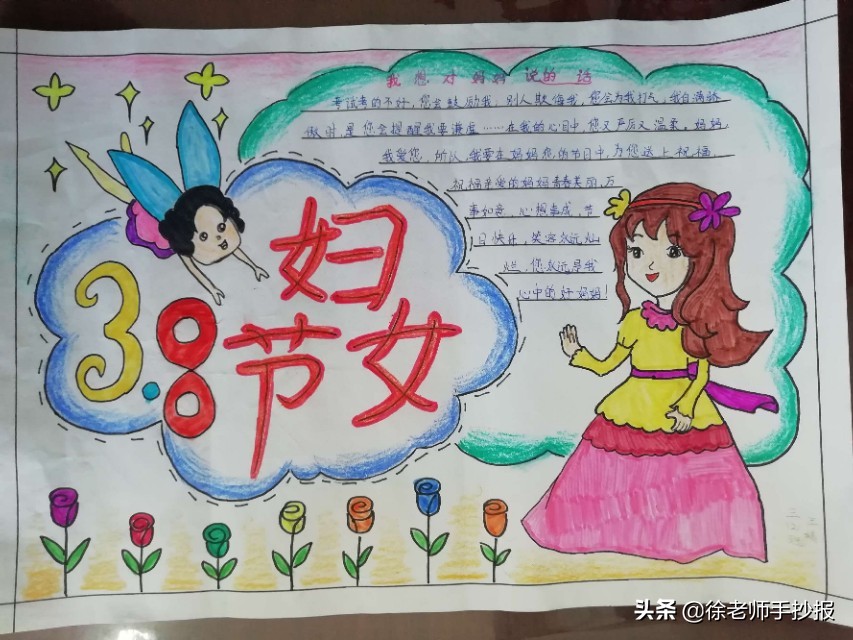 我想对妈妈说的话
考试考的不好,您会鼓励我,别人欺侮我,您会为我打气,我自满骄
傲时,是您会提醒我要谦虚……在我的心目中,您又严厉又温柔。妈妈,
我爱您,所以,我要在妈妈您的节日中,为您送上祝福
祝福亲爱的妈妈青春美丽,万
事如意,心想事成,节
日快乐,笑容永远灿
烂,您永远是我
心中的好妈妈!
3.8
妇
节女
头条 @徐老师手抄报